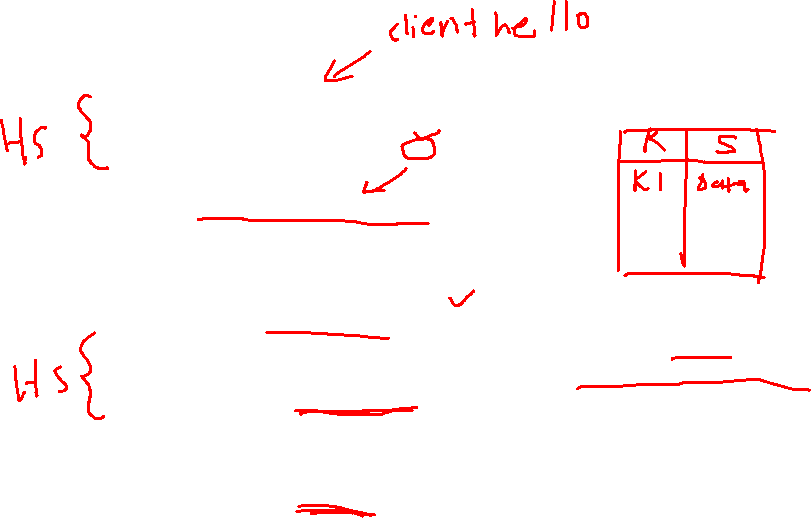 clienthello
HS {
K S
K1 Data
HS {